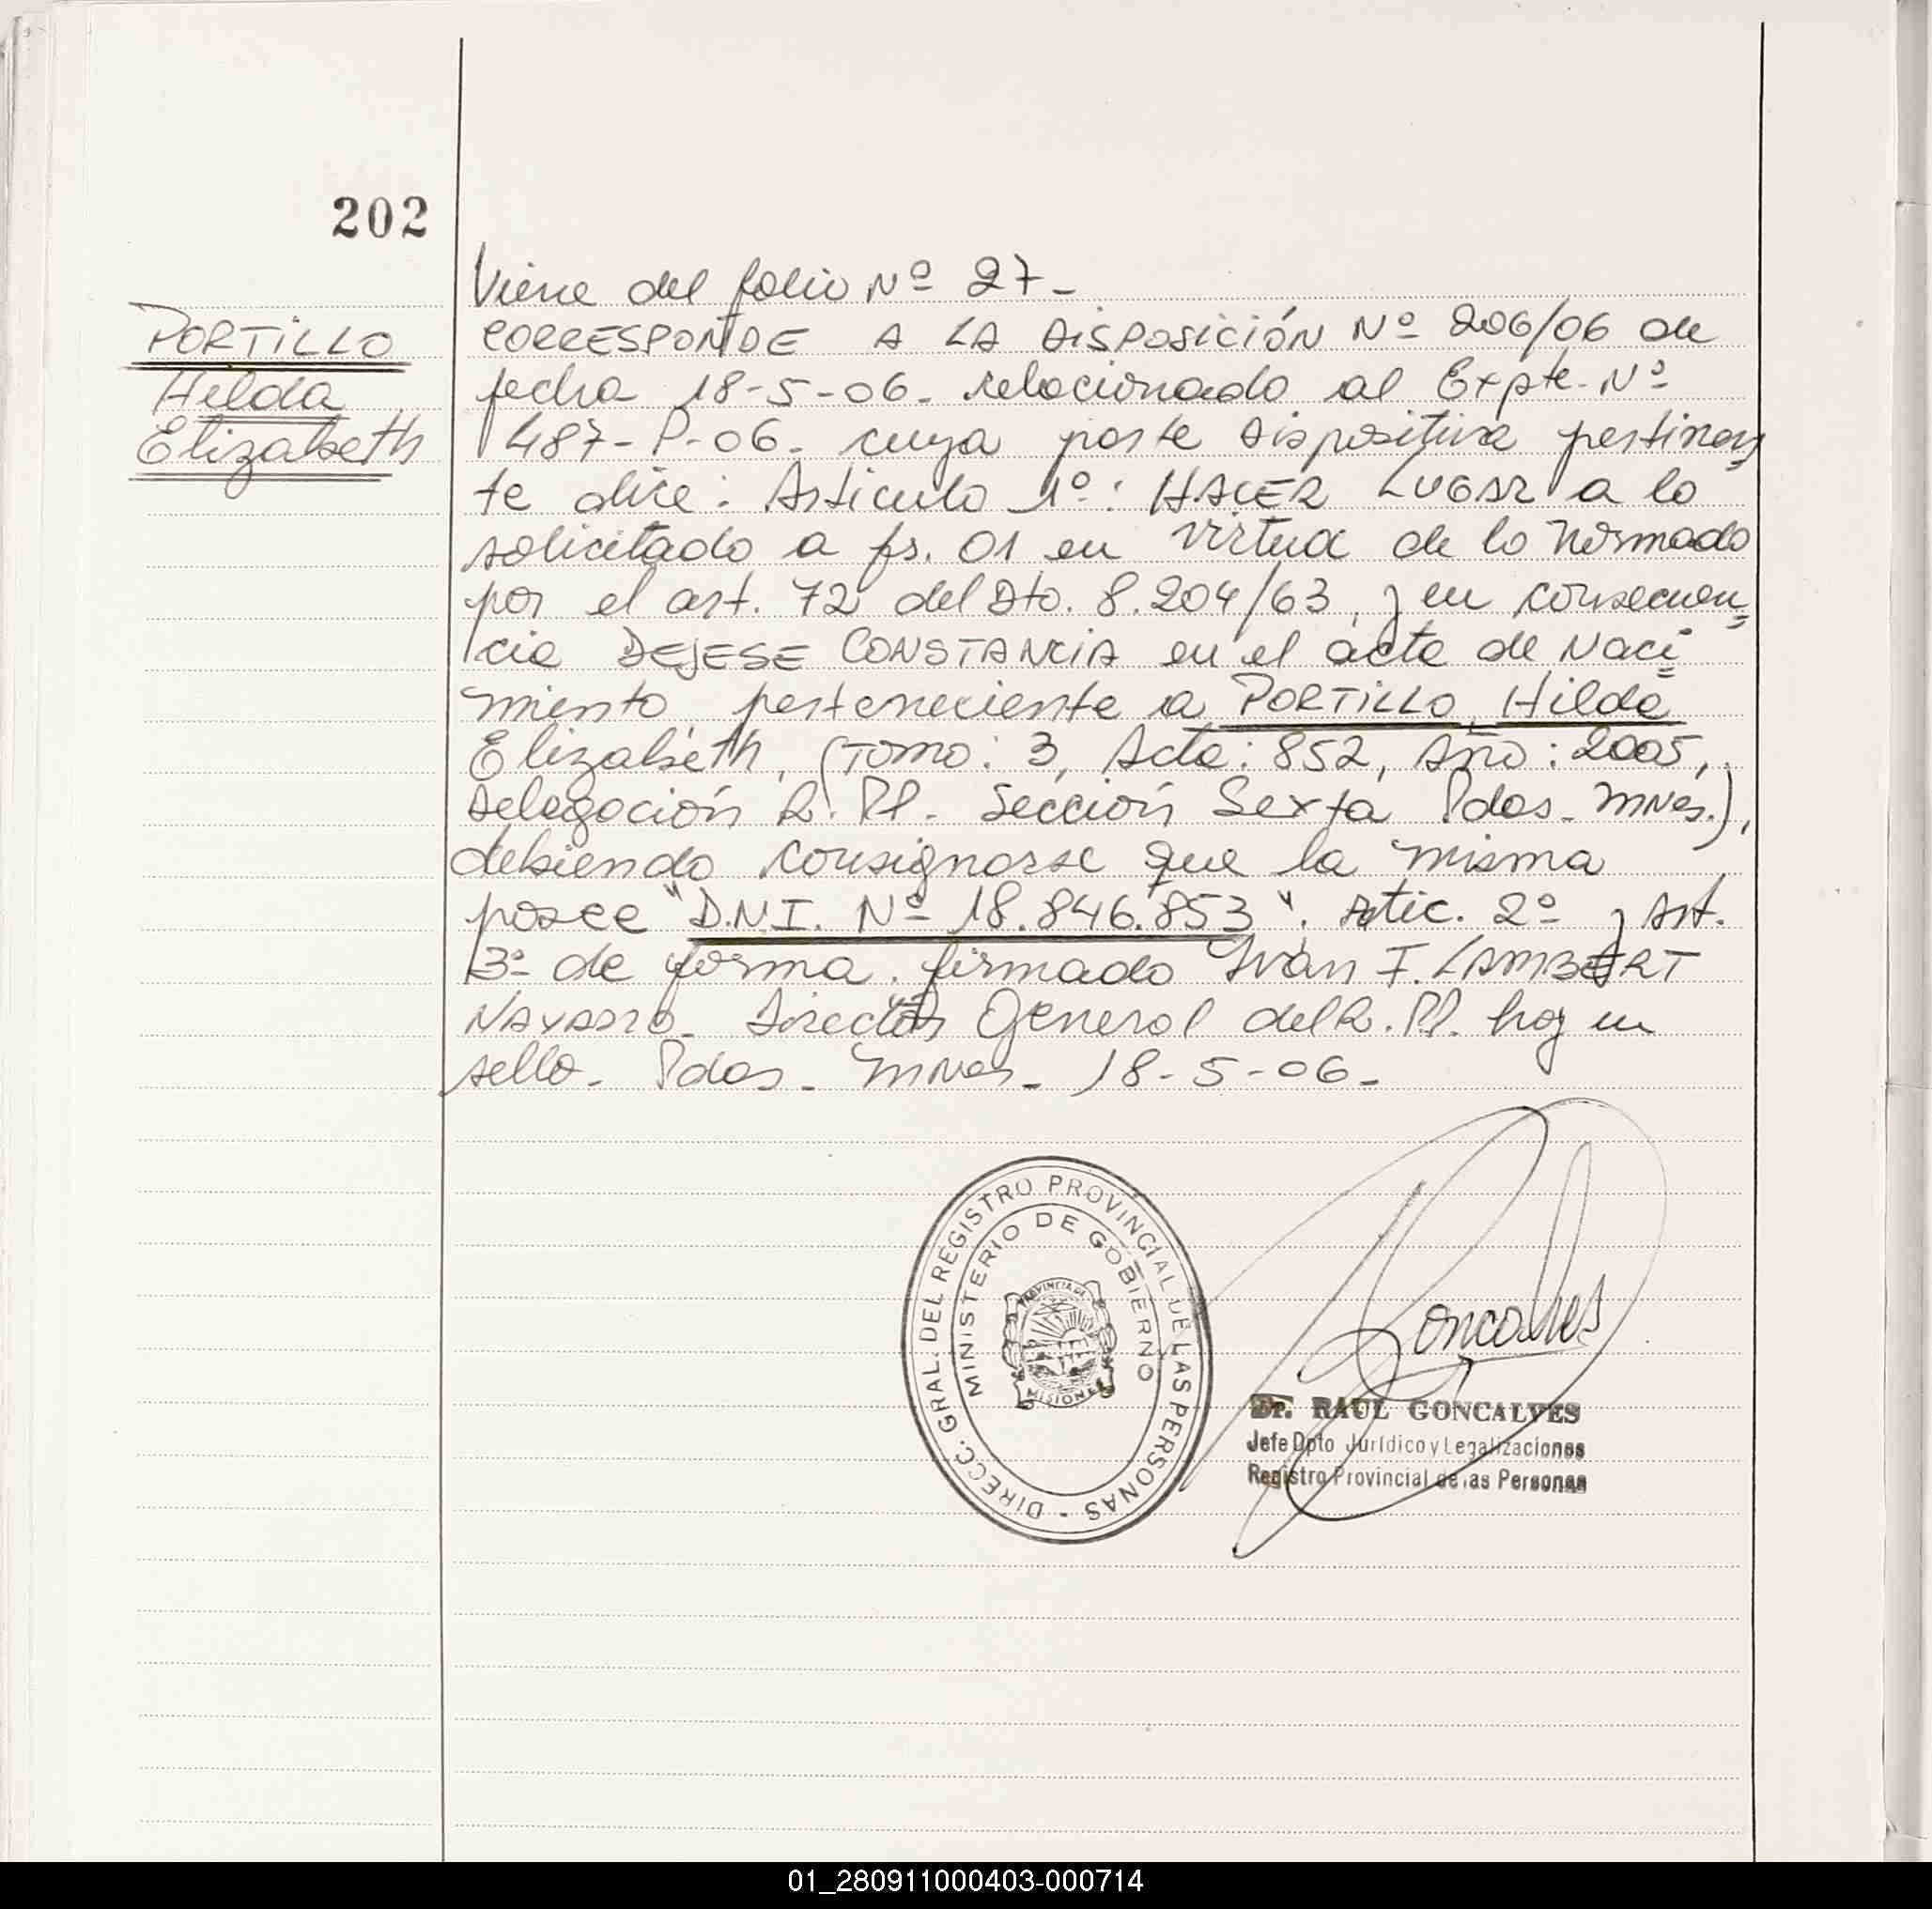 202
PORTILLO
Hilda
Elizabeth
Viene del folio Nº 27-
CORRESPONDE A LA DISPOSICIÓN Nº 206/06 de
fecha 18-5-06- relacionado al Expte- Nº
1487-P-06- cuya parte dispositiva pertinen=
te dice: Articulo 1º: HACER LUGAR a lo
solicitado a fs. 01 en virtud de lo normado
por el art. 72 del Dto. 8.204/63, y en consecuen=
cia DEJESE CONSTANCIA en el acta de Naci=
miento perteneciente a PORTILLO, Hilda
Elizabeth, (Tomo: 3, Acta: 852, Año: 2005,
Delegación R. PP. Sección Sexta Pdas. Mnes.),
debiendo consignarse que la misma
posee "D.N.I. Nº 18.846.853". Artic. 2º y Art.
3º de forma. firmado Iván F. LAMBERT
NAVARRO- Director General del R. PP. hay un
sello- Pdas- Mnes- 18-5-06-
DIRECC. GRAL. DEL REGISTRO PROVINCIAL DE LAS PERSONAS -
MINISTERIO DE GOBIERNO
PROVINCIA DE
MISIONES
Goncalves
Dr. RAUL GONCALVES
Jefe Dpto Jurídico y Legalizaciones
Registro Provincial de las Personas
01_280911000403-000714